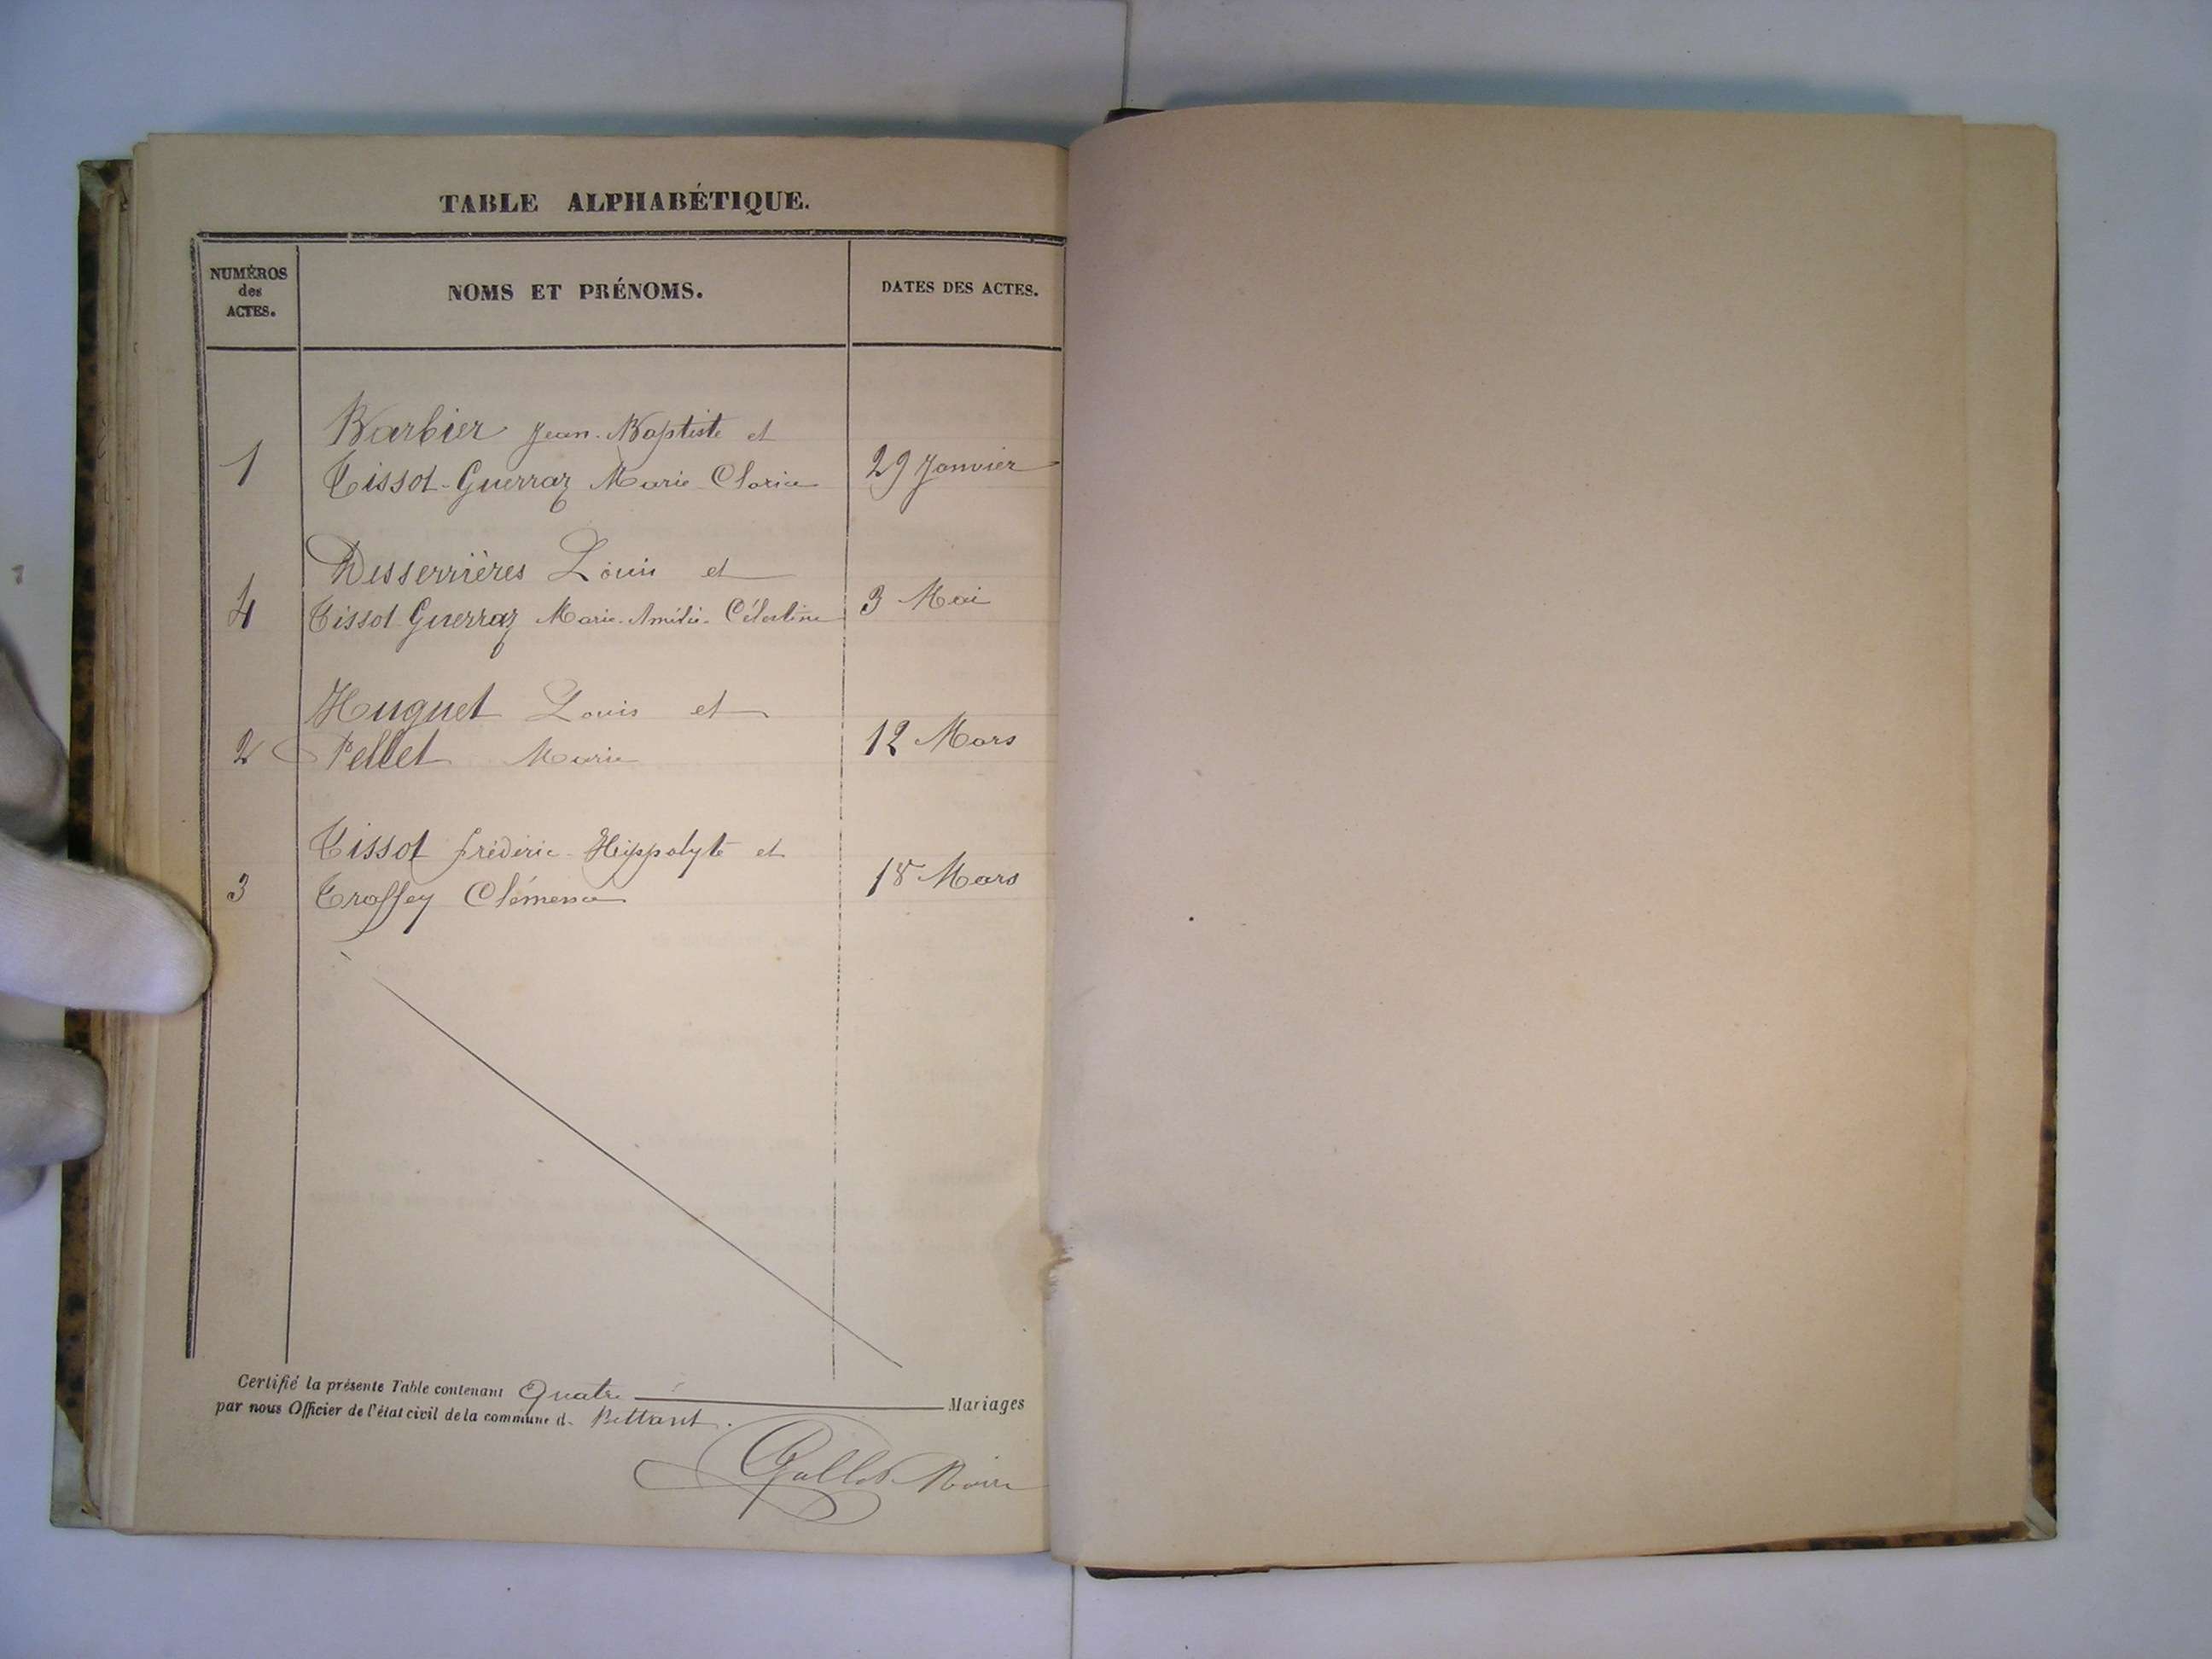 TABLE ALPHABÉTIQUE.
NUMÉROS
des
ACTES.
NOMS ET PRÉNOMS.
DATES DES ACTES.
Barbier Jean-Baptiste et
1 Tissot-Guerraz Marie Clarice 29 Janvier
Desserrières Louis et
4 Tissot-Guerraz Marie-Amélie-Célestine 3 Mai
Huguet Louis et
2 Pellet Marie 12 Mars
Tissot frédéric-Hippolyte et
3 Clémence 18 Mars
Certifié la présente Table contenant Quatre Mariages
par nous Officier de l'état civil de la commune d. Bettant.